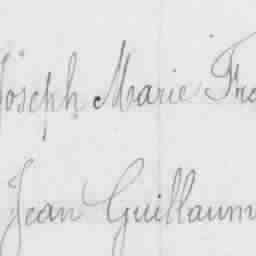 Joseph Marie Fra
Jean Guillaum